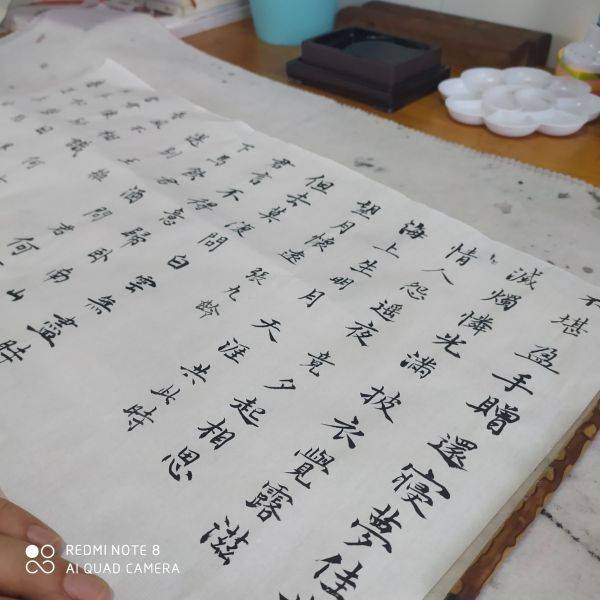 不堪盈手贈還寢夢佳
滅燭憐光滿披衣覺露滋
情人怨遙夜竟夕起相思
海上生明月天涯共此時
望月懷遠張九齡
但去莫復問白雲無盡時
君言不得意歸臥南山
下馬飲君酒問君何
送別王維
REDMI NOTE 8
AI QUAD CAMERA